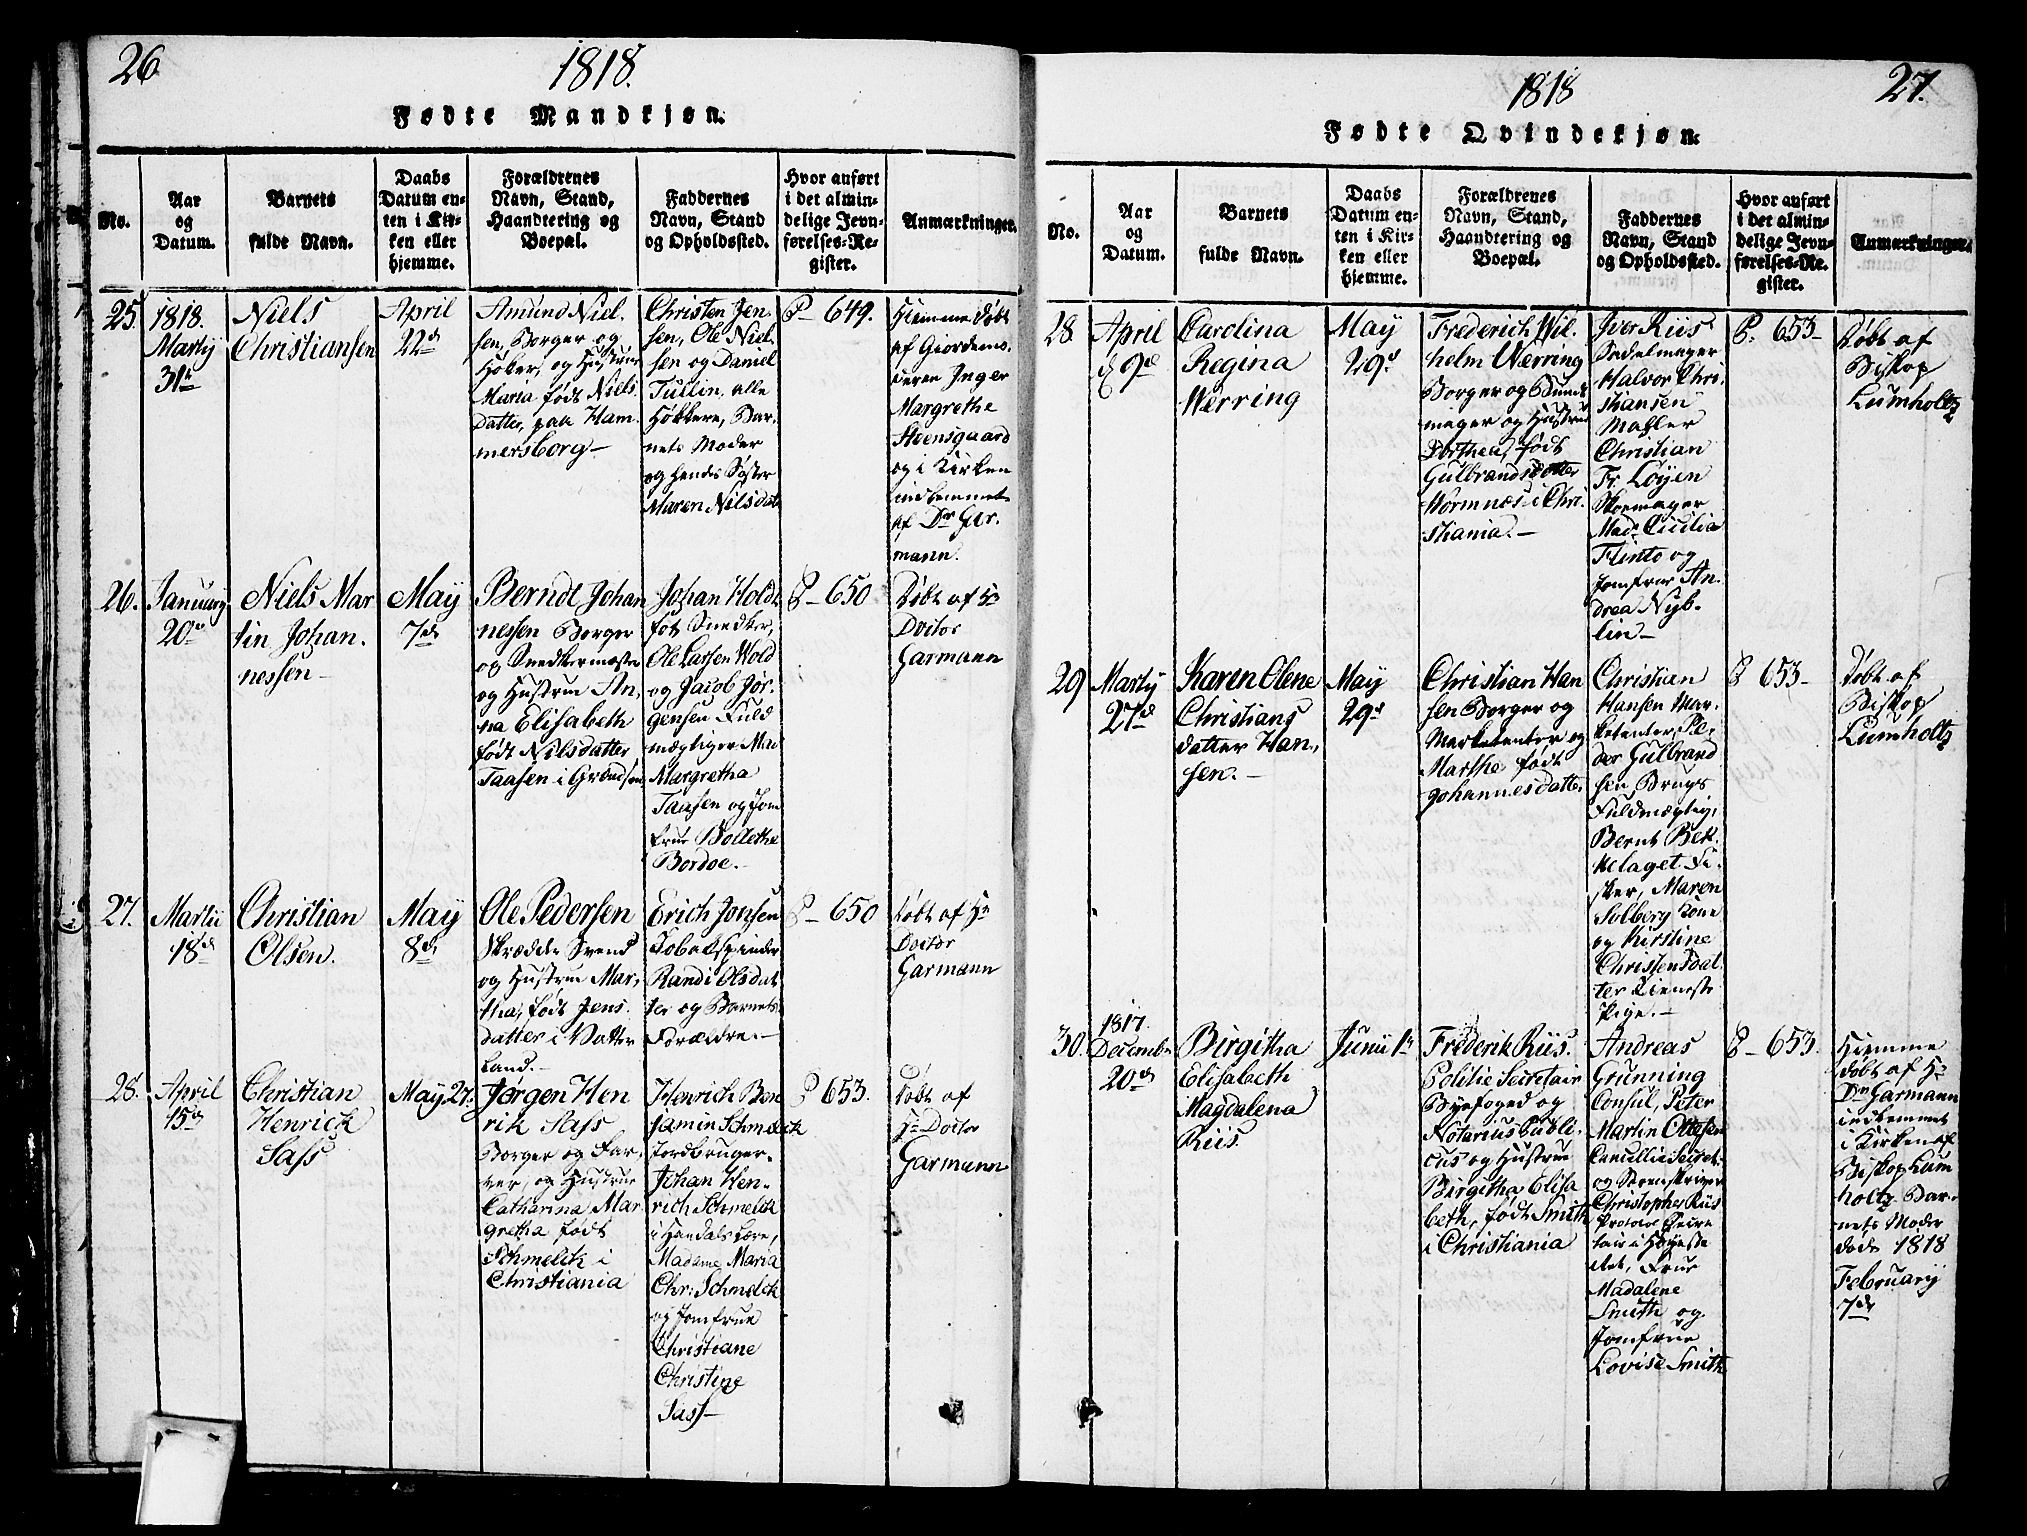 26
1818.
Fødte Mandkjøn.
No.
Aar
og
Datum.
Barnets
fulde Navn.
Daabs
Datum en-
ten i Kir-
ken eller
hjemme.
Forældrenes
Navn, Stand,
Haandtering og
Boepæl.
Faddernes
Navn, Stand
og Opholdssted.
Hvor anført
i det almin-
delige Jevn-
førelses-Re-
gister.
Anmærkninger.
25.
1818.
Martij
31te
Niels
Christiansen
April
22de
Amund Niel-
sen, Borger og
Høker, og Hustrue
Maria født Niels
datter, paa Ham-
mersborg—
Christen Jen-
sen, Ole Niel-
sen og Daniel
Tullin, alle
Høkkere, Bar-
nets Moder
og hendes Søster
Maren Nilsdat
P— 649.
Hiemme døbt
af Giordemo-
deren Inger
Margrethe
Steensgaard
og i Kirken
indkemmet
af Dr Gar-
mann.
26.
January
20de
Niels Mar
tin Johan-
nessen—
May
7de
Berndt Johan
nessen Borger
og Snedkermester
og Hustrue An-
na Elisabeth
født Nilsdatter
Taasen i Grændsen
Johan Holdt
fot Snedker,
Ole Larsen Wold
og Jacob Jør-
gensen Fuld
mægtiger Mad
Margretha
Taasen og Jom
frue Bolletha
Bordoe.—
P— 650
Døbt af Hr
Doctor
Garmann
27.
Martii
18de
Christian
Olsen.
May
8de
Ole Pedersen
Skrædder Svend
og Hustrue Mar-
tha, født Jens
datter i Vatter
Land.—
Erich Jonsen
Tobakspinder
Randi Olsdat
ter og Barnets
Forældre.—
P— 650
Døbt af Hr
Doctor
Garmann
28.
April
15de
Christian
Henrick
Sass
May 27.
Jørgen Hen
rik Sass
Borger og Far-
ver, og Hustrue
Catharina Mar
gretha født
Schmelck i
Christiania
Henrich Ben
jamin Schmelck
Jordbruger.
Johan Hen-
rich Schmelck
i Handelslære,
Madame Maria
Chr: Schmelck
og Jomfrue
Christiane
Christine
Sass—
P 653.
Døbt af
Hr Doctor
Garmann
1818
27.
Fødte Qvindekjøn.
No.
Aar
og
Datum.
Barnets
fulde Navn.
Daabs
Datum en-
ten i Kir-
ken eller
hjemme.
Forældrenes
Navn, Stand,
Haandtering og
Boepæl.
Faddernes
Navn, Stand
og Opholdssted.
Hvor anført
i det almin-
delige Jevn-
førelses-Re-
gister.
Anmærkninger.
28.
April
d 9de
Carolina
Regina
Werring
May
29d
Frederich Wil-
helm Werring
Borger og Bundt
mager og Hustrue
Dorthea, født
Gulbrandsdatter
Wormnæs i Chri-
stiania.—
Iver Riis
Sadelmager
Halvor Chri-
stiansen
Mahler
Christian
Fr. Løyen
Skoemager
Mad. Cicilia
Flinto og
Jomfrue An-
drea Nyb-
lin—
P. 653—
Døbt af
Biskop
Lumholtz
29
Martij
27d
Karen Olene
Christians
datter Han-
sen.—
May
29d
Christian Han
sen Borger og
Marketenter og
Marthe født
Johannesdatter
Christian
Hansen Mar-
ketenter, Pe-
der Gulbrand
sen Brugs
Fuldmægtig,
Bernt Bek-
kelaget Fi-
sker, Maren
Solberg Kone
og Kirstine
Christensdat-
ter Tieneste
Pige.—
P 653—
Døbt af
Biskop
Lumholtz
30.
1817.
Decembr
20de
Birgitha
Elisabeth
Magdalena
Riis.
Junii 1te
Frederik Riis.
Politie Secretair
Byefoged og
Notarius Publi-
cus og Hustrue
Birgitha Elisa
beth, født Smith
i Christiania
Andreas
Grunning
Consul, Peter
Martin Ottesen
Cancellie Secret.
og Sorenskriver
Christopher Riis
Protocol Secre
tair i Høyeste
Ret, Frue
Madalene
Smith og
Jomfrue
Lovise Smith
P— 653.
Hiemme
døbt af Hr
Dr Garmann
indkemmet
i Kirken af
Biskop Lum
holtz. Bar-
nets Moder
døde 1818
February
7de